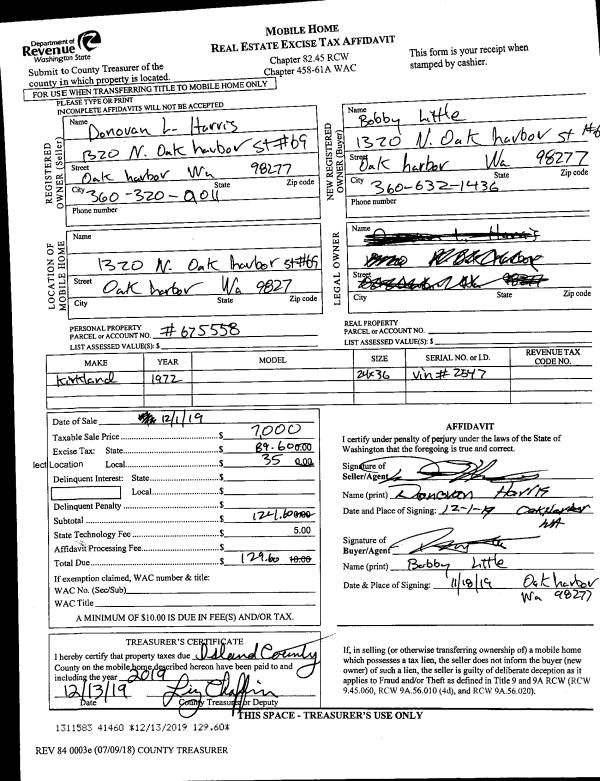 Department of
Revenue
Washington State
MOBILE HOME
REAL ESTATE EXCISE TAX AFFIDAVIT
Chapter 82.45 RCW
Chapter 458-61A WAC
This form is your receipt when
stamped by cashier.
Submit to County Treasurer of the
county in which property is located.
FOR USE WHEN TRANSFERRING TITLE TO MOBILE HOME ONLY
PLEASE TYPE OR PRINT
INCOMPLETE AFFIDAVITS WILL NOT BE ACCEPTED
REGISTERED OWNER (Seller)
Name Donovan L. Harris
1320 N. Oak harbor st #69
Street Oak harbor Wa 98277
City State Zip code
360-320-0011
Phone number
NEW REGISTERED OWNER (Buyer)
Name Bobby Little
1320 N. Oak harbor st #6
Street Oak harbor Wa 98277
City State Zip code
360-632-1436
Phone number
LOCATION OF MOBILE HOME
Name
1320 N. Oak harbor st #69
Street Oak harbor Wa 9827
City State Zip code
LEGAL OWNER
Name
Street
City State Zip code
PERSONAL PROPERTY
PARCEL or ACCOUNT NO. #675558
LIST ASSESSED VALUE(S): $
REAL PROPERTY
PARCEL or ACCOUNT NO.
LIST ASSESSED VALUE(S): $
MAKE YEAR MODEL SIZE SERIAL NO. or I.D. REVENUE TAX CODE NO.
Kirkland 1972 24x36 Vin# 2547
Date of Sale 12/1/19
Taxable Sale Price $ 7,000
Excise Tax: State $ 89.60 0.00
lect Location Local $ 35 0.00
Delinquent Interest: State $
Local $
Delinquent Penalty $
Subtotal $ 124.60 0.00
State Technology Fee $ 5.00
Affidavit Processing Fee $
Total Due $ 129.60 10.00
If exemption claimed, WAC number & title:
WAC No. (Sec/Sub)
WAC Title
A MINIMUM OF $10.00 IS DUE IN FEE(S) AND/OR TAX.
AFFIDAVIT
I certify under penalty of perjury under the laws of the State of
Washington that the foregoing is true and correct.
Signature of
Seller/Agent
Name (print) Donovan Harris
Date and Place of Signing: 12-1-19 Oak Harbor
WA
Signature of
Buyer/Agent
Name (print) Bobby Little
Date & Place of Signing: 11/18/19 Oak harbor
Wa 98277
TREASURER'S CERTIFICATE
I hereby certify that property taxes due Island County
County on the mobile home described hereon have been paid to and
including the year 2019
12/13/19 Liz Chaffin
Date County Treasurer or Deputy
If, in selling (or otherwise transferring ownership of) a mobile home
which possesses a tax lien, the seller does not inform the buyer (new
owner) of such a lien, the seller is guilty of deliberate deception as it
applies to Fraud and/or Theft as defined in Title 9 and 9A RCW (RCW
9.45.060, RCW 9A.56.010 (4d), and RCW 9A.56.020).
THIS SPACE - TREASURER'S USE ONLY
1311583 41460 *12/13/2019 129.60*
REV 84 0003e (07/09/18) COUNTY TREASURER